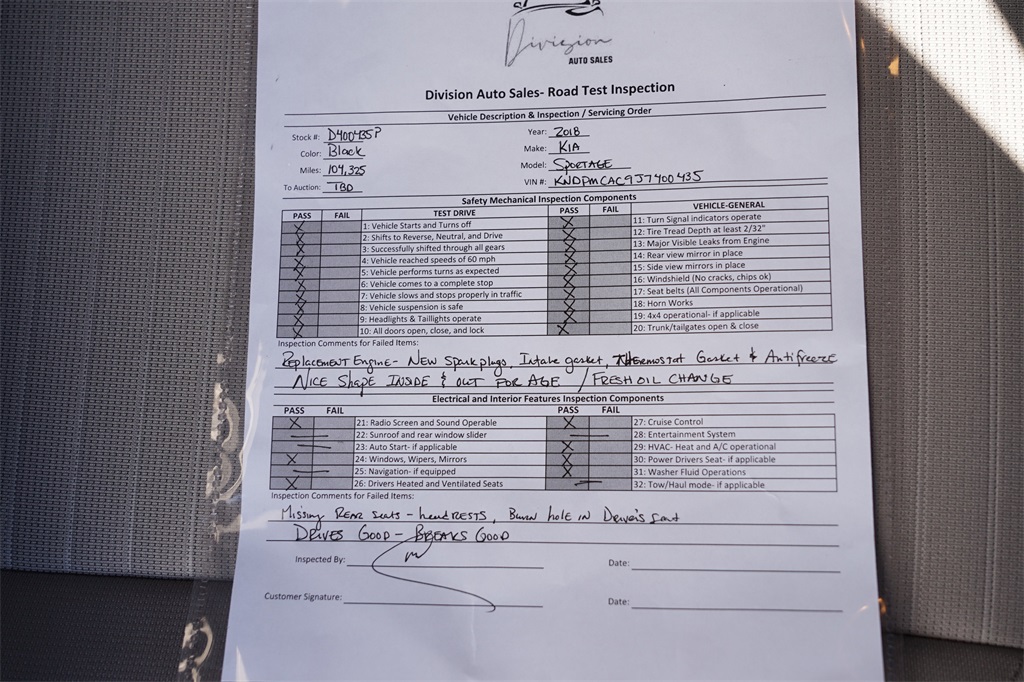 Division
AUTO SALES
Division Auto Sales- Road Test Inspection
Vehicle Description & Inspection / Servicing Order
Stock #: D400435P Year: 2018
Color: Black Make: KIA
Miles: 104,325 Model: SPORTAGE
To Auction: TBD VIN #: KNDPMCAC9J7400435
Safety Mechanical Inspection Components
PASS FAIL TEST DRIVE PASS FAIL VEHICLE-GENERAL
X 1: Vehicle Starts and Turns off X 11: Turn Signal indicators operate
X 2: Shifts to Reverse, Neutral, and Drive X 12: Tire Tread Depth at least 2/32"
X 3: Successfully shifted through all gears X 13: Major Visible Leaks from Engine
X 4: Vehicle reached speeds of 60 mph X 14: Rear view mirror in place
X 5: Vehicle performs turns as expected X 15: Side view mirrors in place
X 6: Vehicle comes to a complete stop X 16: Windshield (No cracks, chips ok)
X 7: Vehicle slows and stops properly in traffic X 17: Seat belts (All Components Operational)
X 8: Vehicle suspension is safe X 18: Horn Works
X 9: Headlights & Taillights operate X 19: 4x4 operational- if applicable
X 10: All doors open, close, and lock X 20: Trunk/tailgates open & close
Inspection Comments for Failed Items:
Replacement Engine- New Spark plugs, Intake gasket, Thermostat Gasket & Antifreeze
Nice Shape INSIDE & OUT FOR AGE / FRESH OIL CHANGE
Electrical and Interior Features Inspection Components
PASS FAIL PASS FAIL
X 21: Radio Screen and Sound Operable X 27: Cruise Control
— 22: Sunroof and rear window slider — 28: Entertainment System
— 23: Auto Start- if applicable X 29: HVAC- Heat and A/C operational
X 24: Windows, Wipers, Mirrors X 30: Power Drivers Seat- if applicable
— 25: Navigation- if equipped X 31: Washer Fluid Operations
X 26: Drivers Heated and Ventilated Seats — 32: Tow/Haul mode- if applicable
Inspection Comments for Failed Items:
Missing REAR seats - headRESTS, Burn hole in Driver's Seat
DRIVES GOOD - BREAKS GOOD
Inspected By: Date:
Customer Signature: Date: